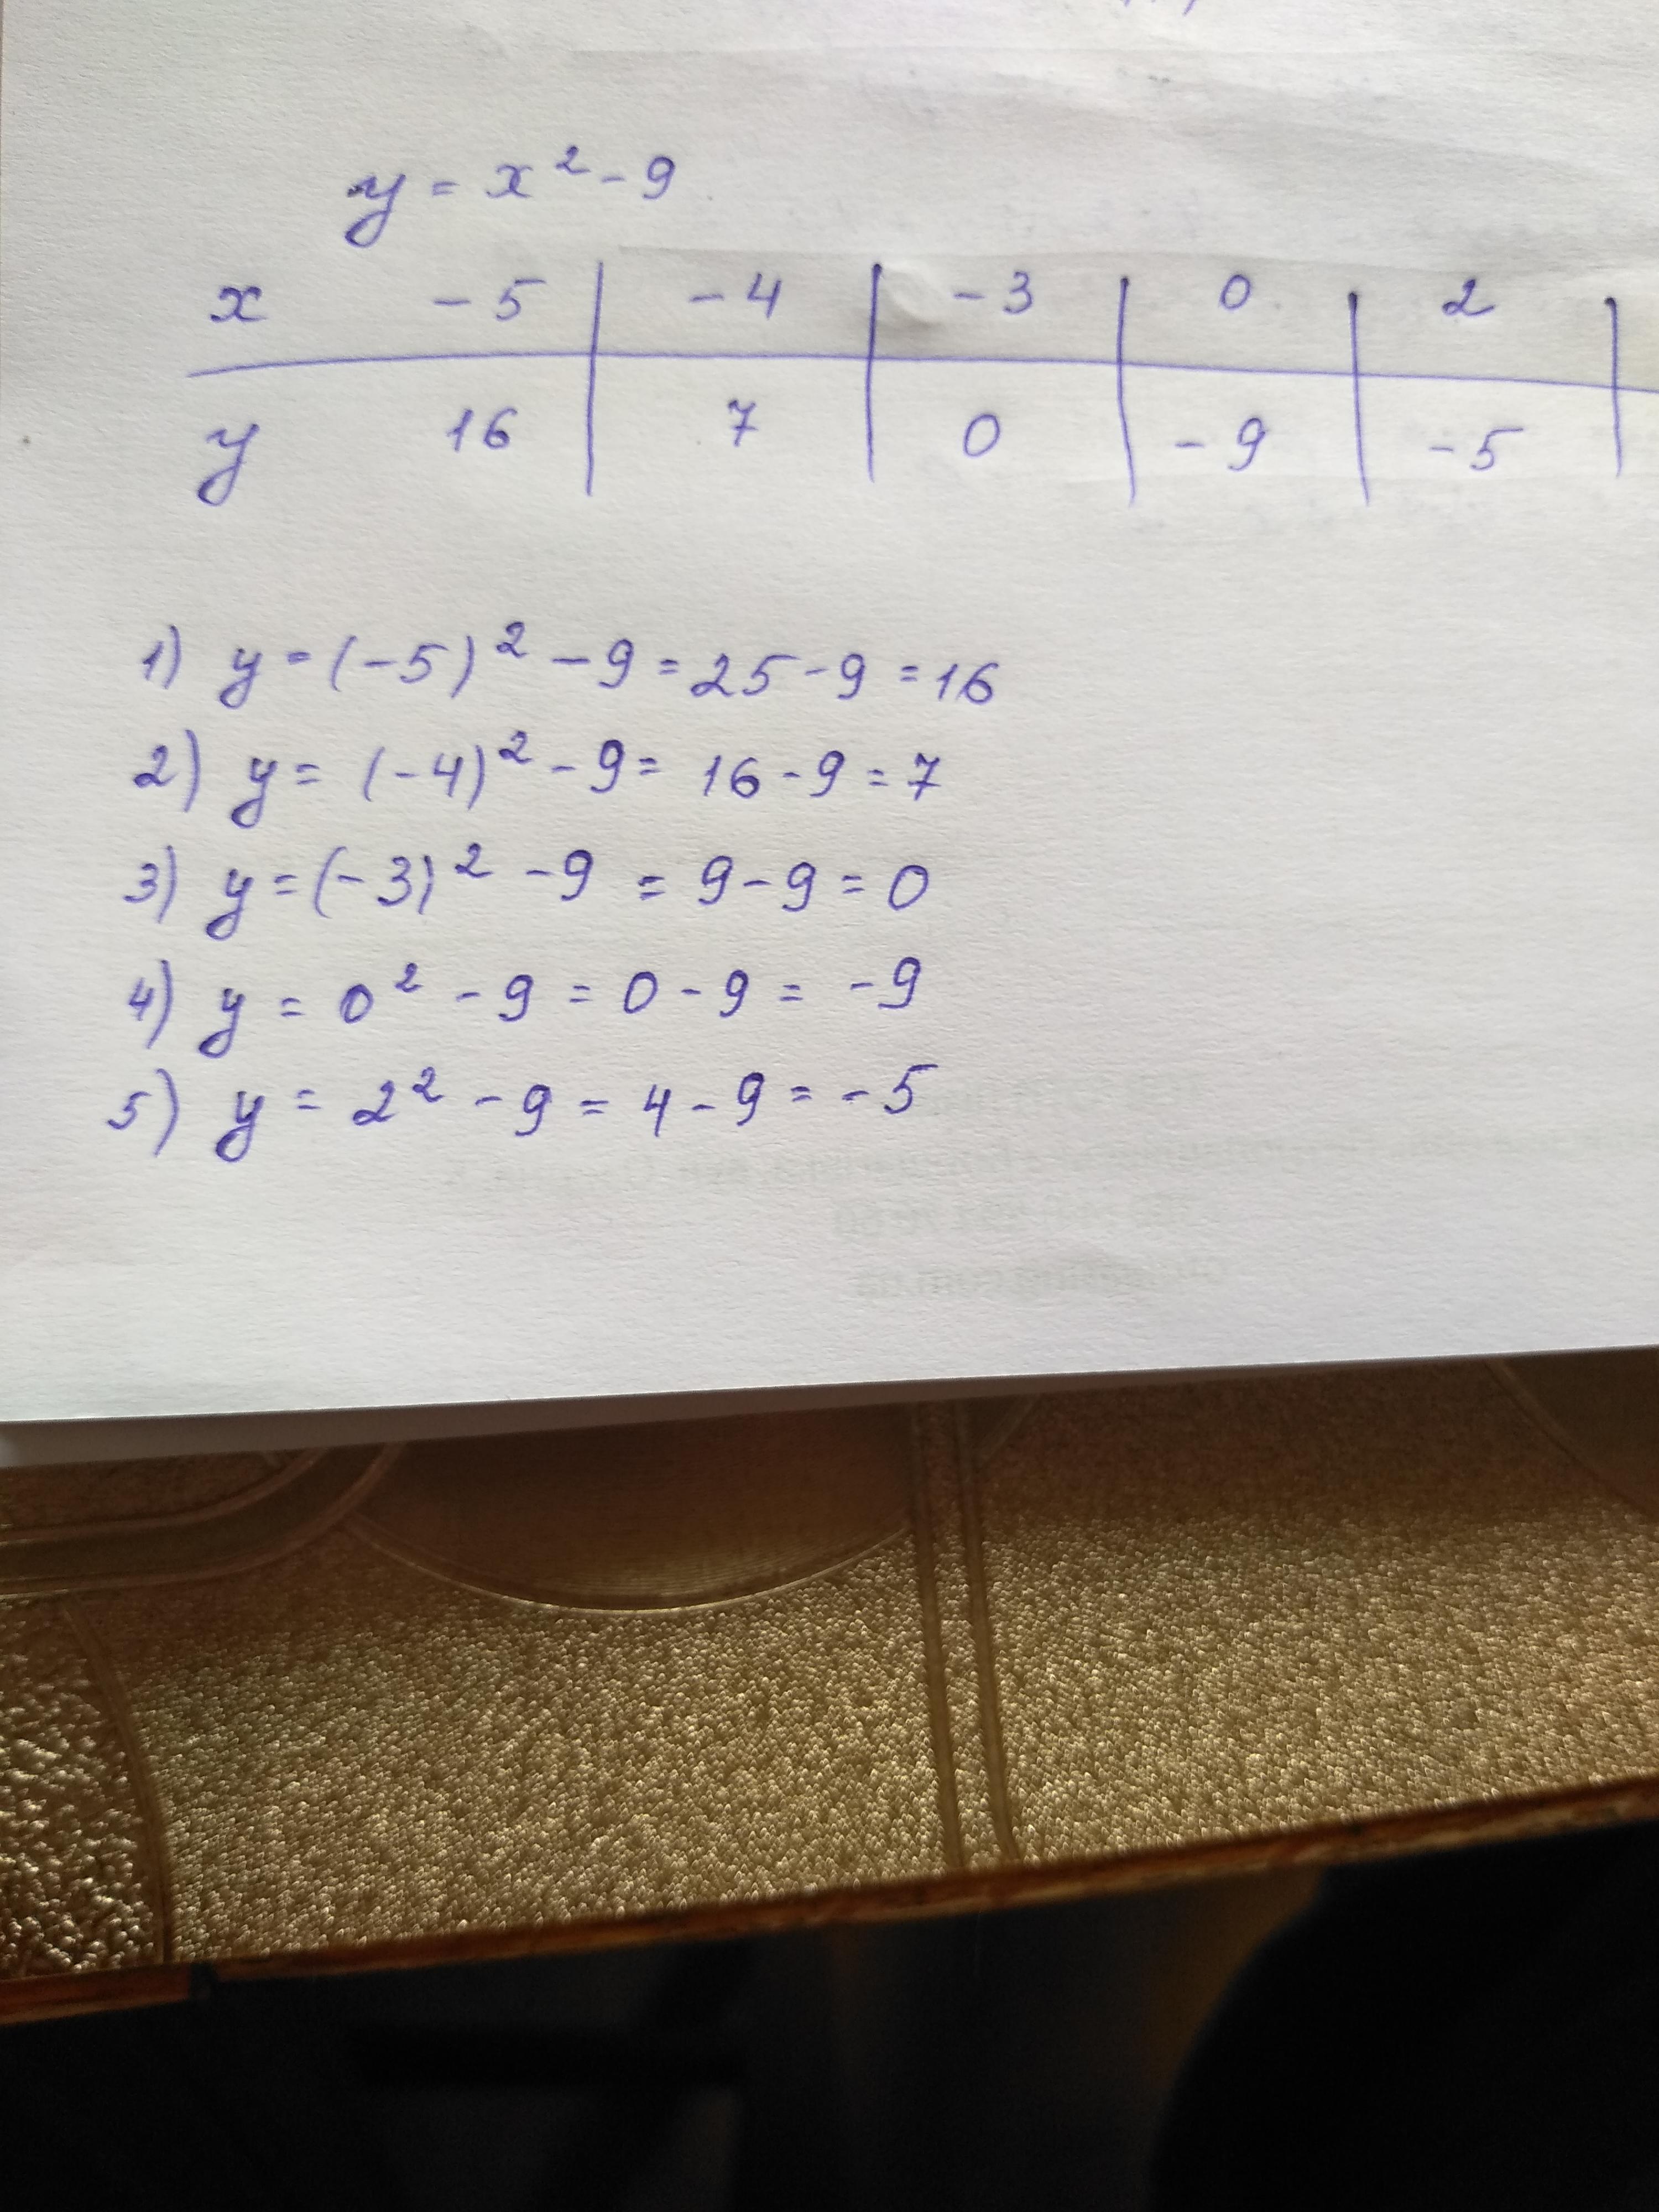 y = x² - 9
x -5 | -4 | -3 | 0 | 2 |
y 16 | 7 | 0 | -9 | -5 |
1) y = (-5)² - 9 = 25 - 9 = 16
2) y = (-4)² - 9 = 16 - 9 = 7
3) y = (-3)² - 9 = 9 - 9 = 0
4) y = 0² - 9 = 0 - 9 = -9
5) y = 2² - 9 = 4 - 9 = -5